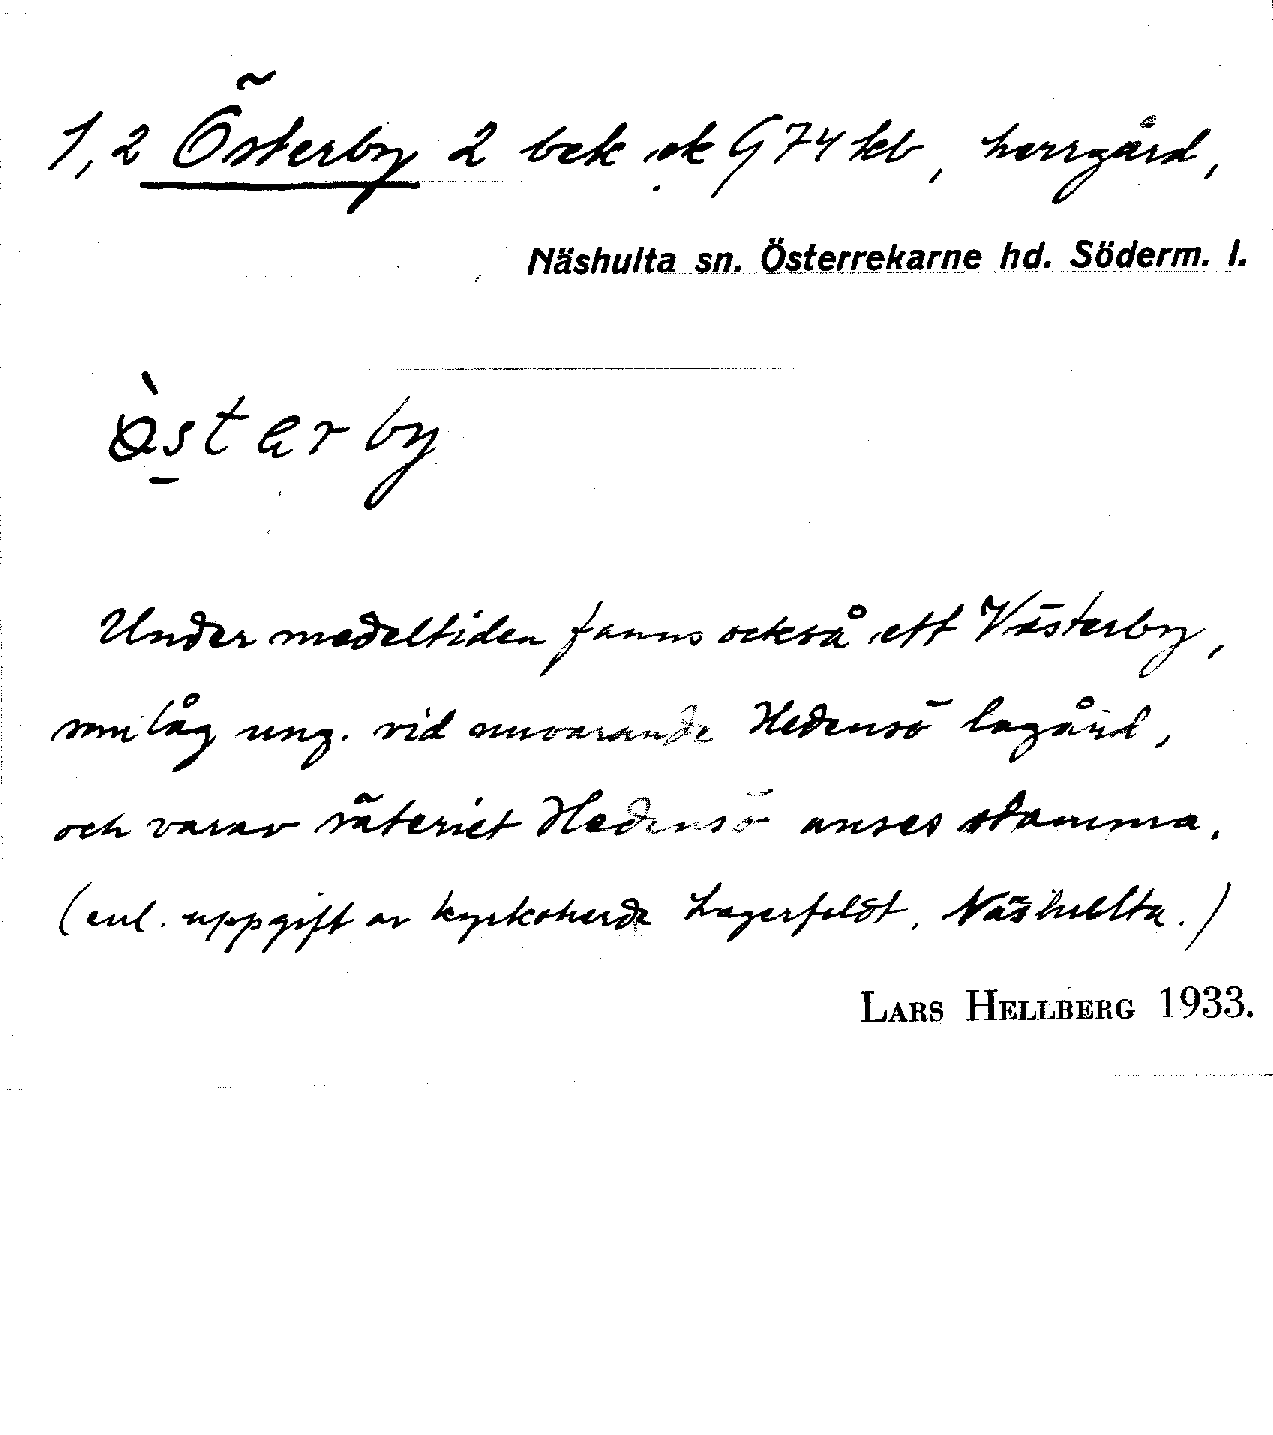 1,2 Österby 2 bek ek G74 kb, herrgård,
Näshulta sn. Österrekarne hd. Söderm. l.
ø̀starby
Under medeltiden fanns också ett Västerby,
som låg ung. vid nuvarande Hedensö lagård,
och varav säteriet Hedensö anses stamma.
(enl. uppgift av kyrkoherde Lagerfeldt, Näshulta.)
LARS HELLBERG 1933.